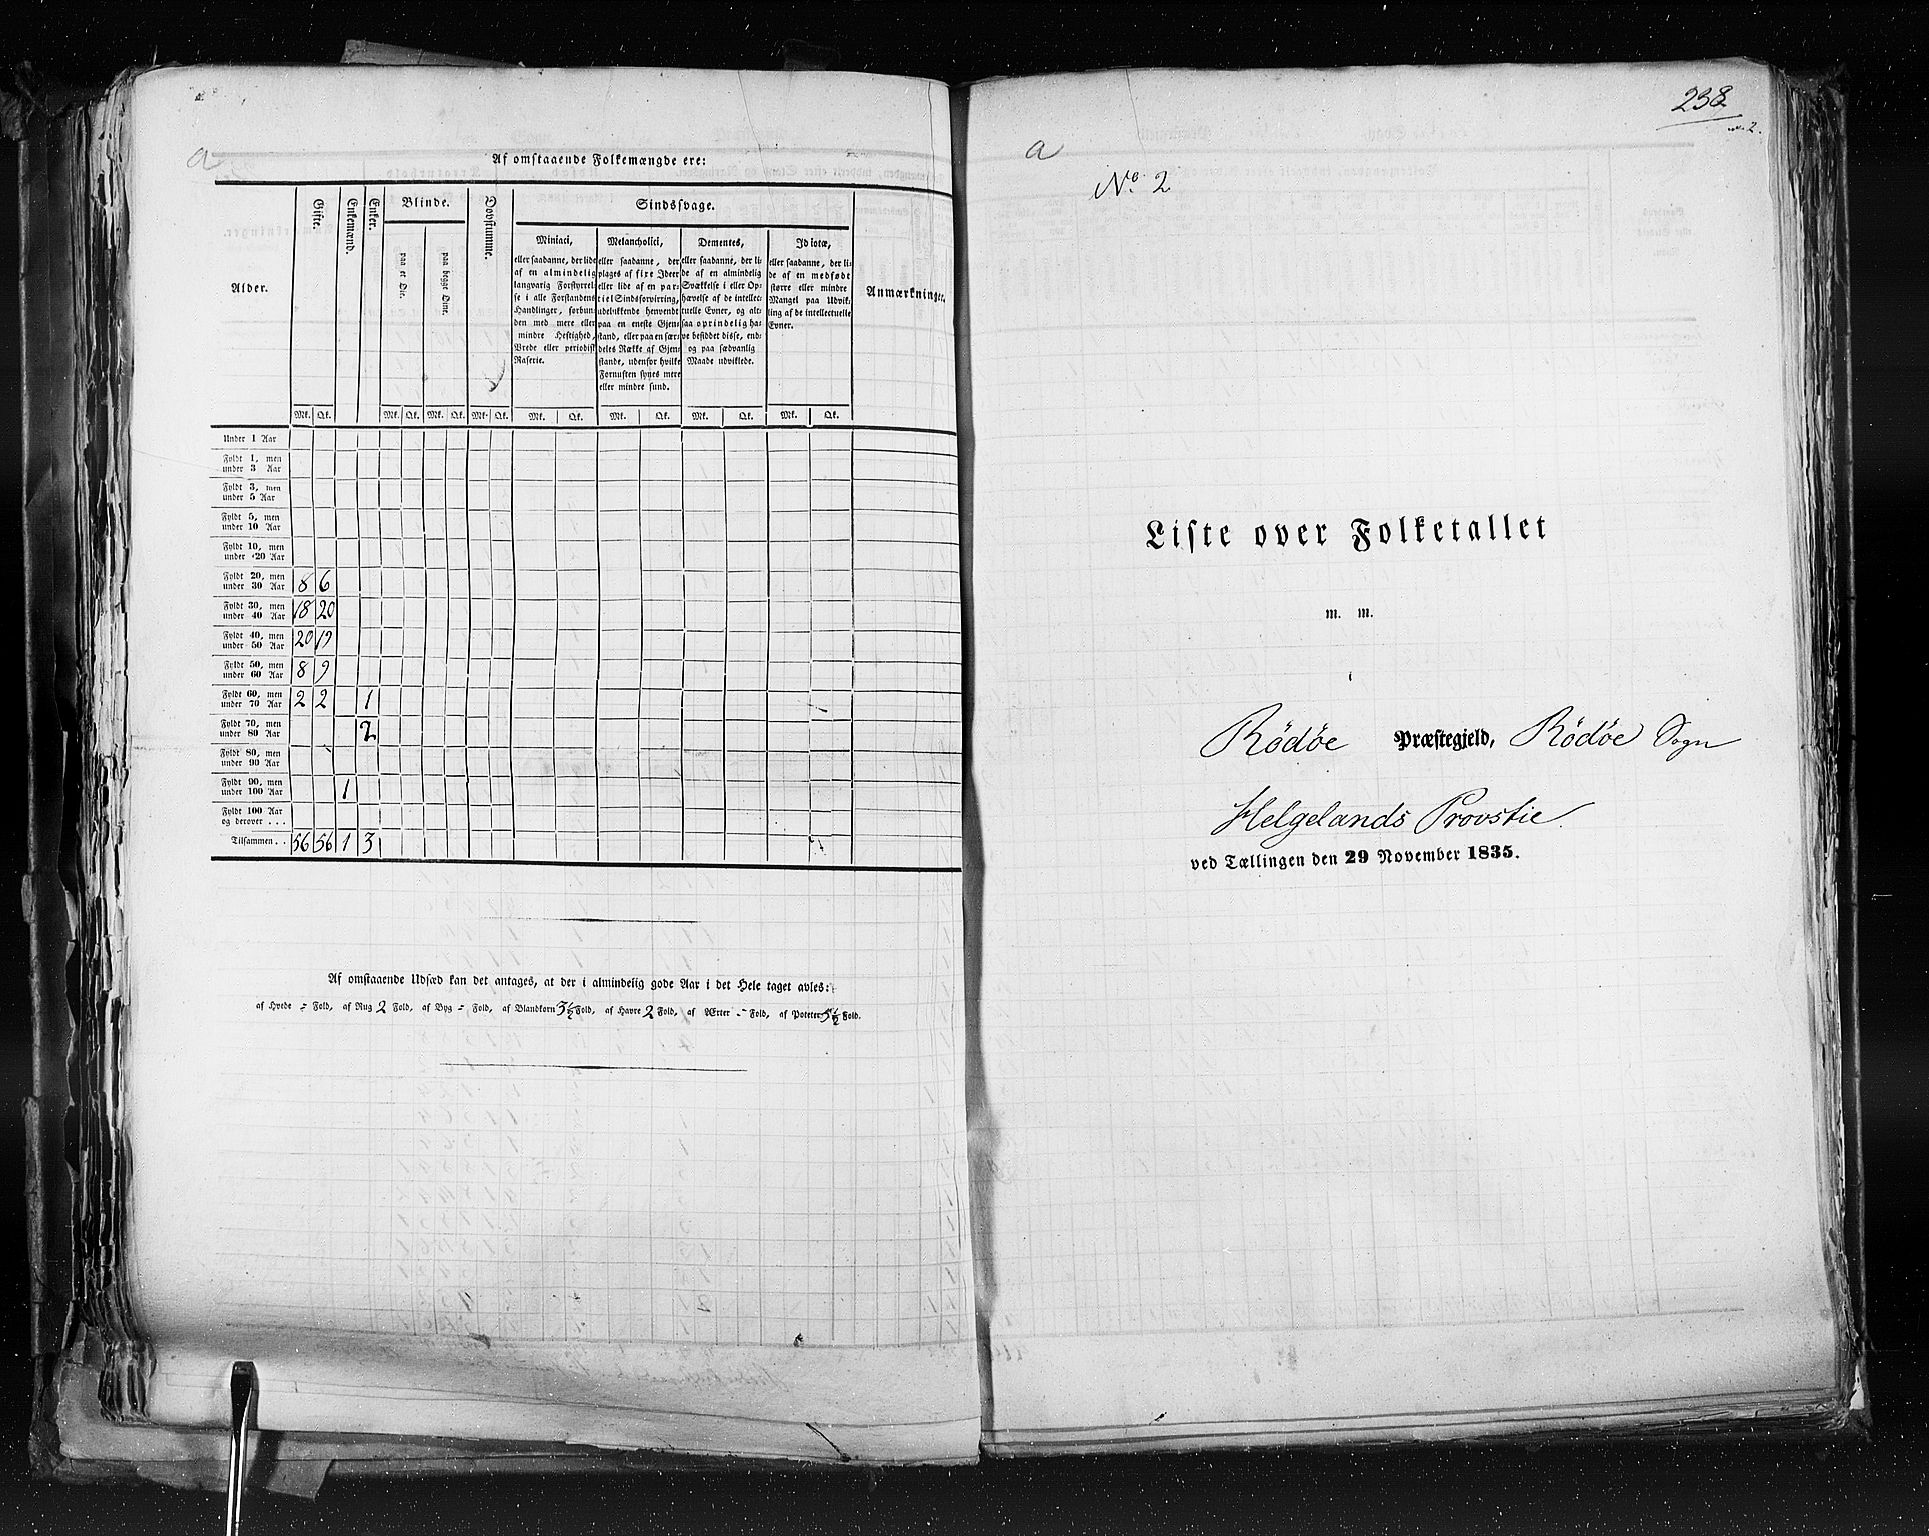 a
Af omstaaende Folkemængde ere:
Alder.
Gifte.
Enkemænd.
Enker.
Blinde.
paa et Øie.
paa begge Øine.
Døvstumme.
Sindssvage.
Miniaci,
eller saadanne, der lide
af en almindelig
langvarig Forstyrrel-
se i alle Forstandens
Handlinger, forbun-
den med mere eller
mindre Heftighed,
Vrede eller periodisk
Raserie.
Melancholici,
eller saadanne, der
plages af fixe Ideer
eller lide af en par-
tiel Sindsforvirring,
udelukkende henvendt
paa en eneste Gjen-
stand, eller paa en sær-
deles Række af Gjen-
stande, udenfor hvilke
Fornuften synes mere
eller mindre sund.
Dementes,
eller saadanne, der li-
de af en almindelig
Svækkelse i eller Op-
hævelse af de intellec-
tuelle Evner, og alt-
saa oprindelig ha-
ve besiddet disse, end-
og paa sædvanlig
Maade udviklede.
Idiotæ,
eller saadanne, der li-
de af en medfødt
større eller mindre
Mangel paa Udvik-
ling af de intellectuelle
Evner.
Anmærkninger.
Mk. Qk. Mk. Qk. Mk. Qk. Mk. Qk. Mk. Qk. Mk. Qk. Mk. Qk. Mk. Qk.
Under 1 Aar
Fyldt 1, men
under 3 Aar
Fyldt 3, men
under 5 Aar
Fyldt 5, men
under 10 Aar
Fyldt 10, men
under 20 Aar
Fyldt 20, men
under 30 Aar 8 6
Fyldt 30, men
under 40 Aar 18 20
Fyldt 40, men
under 50 Aar 20 19
Fyldt 50, men
under 60 Aar 8 9
Fyldt 60, men
under 70 Aar 2 2 1
Fyldt 70, men
under 80 Aar 2
Fyldt 80, men
under 90 Aar
Fyldt 90, men
under 100 Aar 1
Fyldt 100 Aar
og derover . . .
Tilsammen . . 56 56 1 3
Af omstaaende Udsæd kan det antages, at der i almindelig gode Aar i det Hele taget avles:
af Hvede = Fold, af Rug 2 Fold, af Byg = Fold, af Blandkorn 3 1/2 Fold, af Havre 2 Fold, af Ærter - Fold, af Poteter 5 1/2 Fold.
238
a
No. 2
Liste over Folketallet
m. m.
i
Rödøe Præstegjeld, Rödøe Sogn
Helgelands Provstie
ved Tællingen den 29 November 1835.